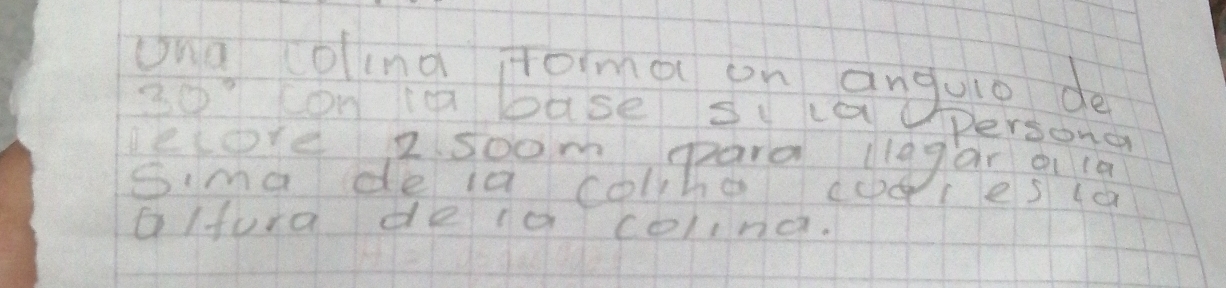 Una colina forma un angulo de
30° con la base si la persona
recore 2.500m para llegar a la
sima de la colina cual es la
altura de la colina.